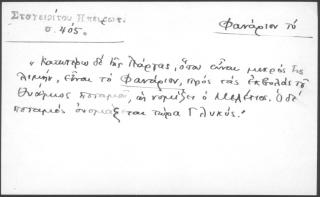 Σταγειρίτου Ηπειρωτ.
σ. 405.
Φανάριον τὸ
„ Κατωτέρω δὲ τῆς Πάργας, ὅπου εἶναι μικρός τις
λιμήν, εἶναι τὸ Φανάριον, πρὸς τὰς ἐκβολὰς τοῦ
Θυάμιος ποταμοῦ, ὡς νομίζει ὁ Μελέτιος. Ὁ δὲ
ποταμὸς ὀνομάζεται τώρα Γλυκύς."